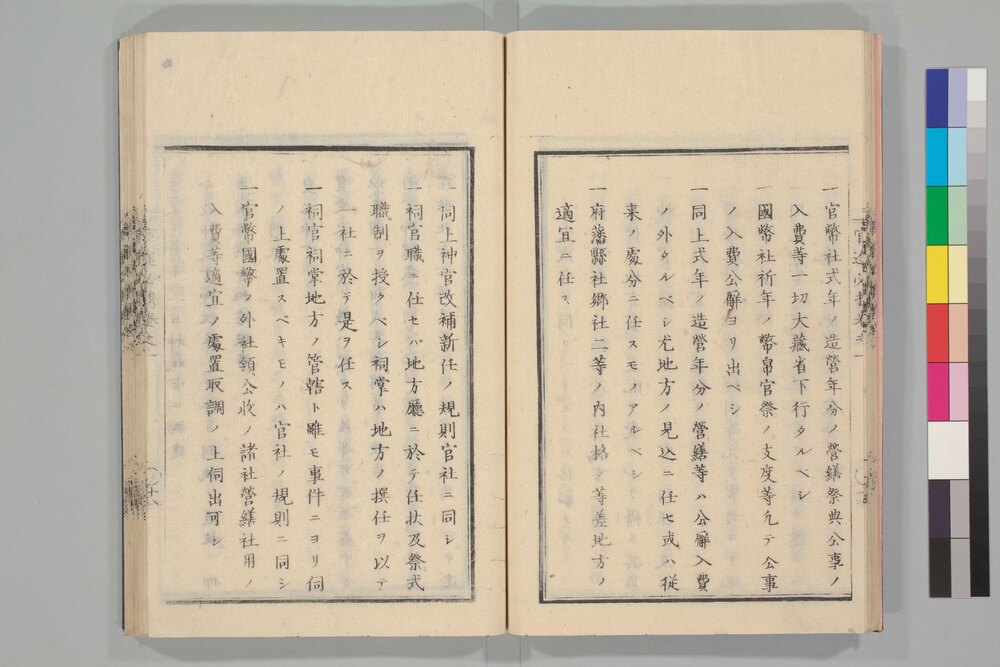 一官幣社式年ノ造營年分ノ營繕祭典公事ノ
入費等一切大藏省下行タルベシ
一國幣社祈年ノ幣帛官祭ノ支度等凢テ公事
ノ入費公廨ヨリ出ベシ
一同上式年ノ造營年分ノ營繕等ハ公廨入費
ノ外タルベシ尤地方ノ見込ニ任セ或ハ從
来ノ處分ニ任スモ アルベシ
一府藩縣社郷社二等ノ内社格ノ等差地方ノ
適冝ニ任ス
一同上神官改補新任ノ規則官社ニ同シ
一祠官職ニ任セバ地方廳ニ於テ任状及祭式
職制ヲ授クベシ祠掌ハ地方ノ撰任ヲ以テ
一社ニ於テ是ヲ任ス
一祠官祠掌地方ノ管轄ト雖モ事件ニヨリ伺
ノ上處置スベキモノハ官社ノ規則ニ同シ
一官幣國幣ノ外社領公收ノ諸社營繕社用ノ
入費等適宜ノ處置取調ノ上伺出可シ